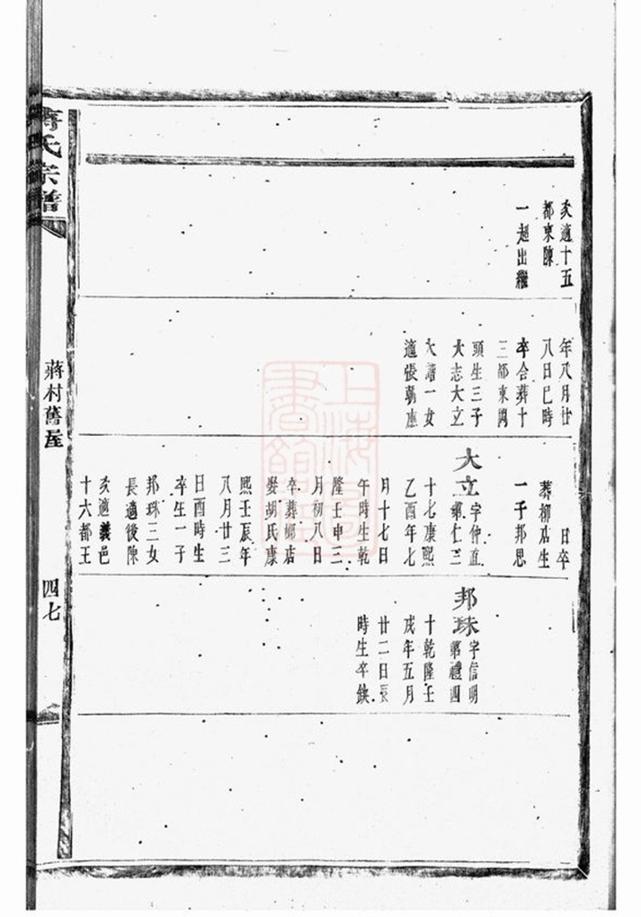 蔣氏宗譜
蔣村舊屋
四七
次適十五
都東陳
一起出繼
年八月廿
八日巳時
卒合葬十
三都東湖
頭生三子
大志大立
大 一女
適張
日卒
葬柳店生
一子邦思
大立字仲直
仁三
十七康熙
乙酉年七
月十七日
午時生乾
隆壬申三
月初八日
卒葬 店
娶胡氏康
熙壬辰年
八月廿三
日酉時生
卒 生一子
邦珠三女
長適後陳
次適義邑
十六都王
邦珠字信明
第禮四
十乾隆壬
戌年五月
廿二日辰
時生卒缺
上海圖書館藏